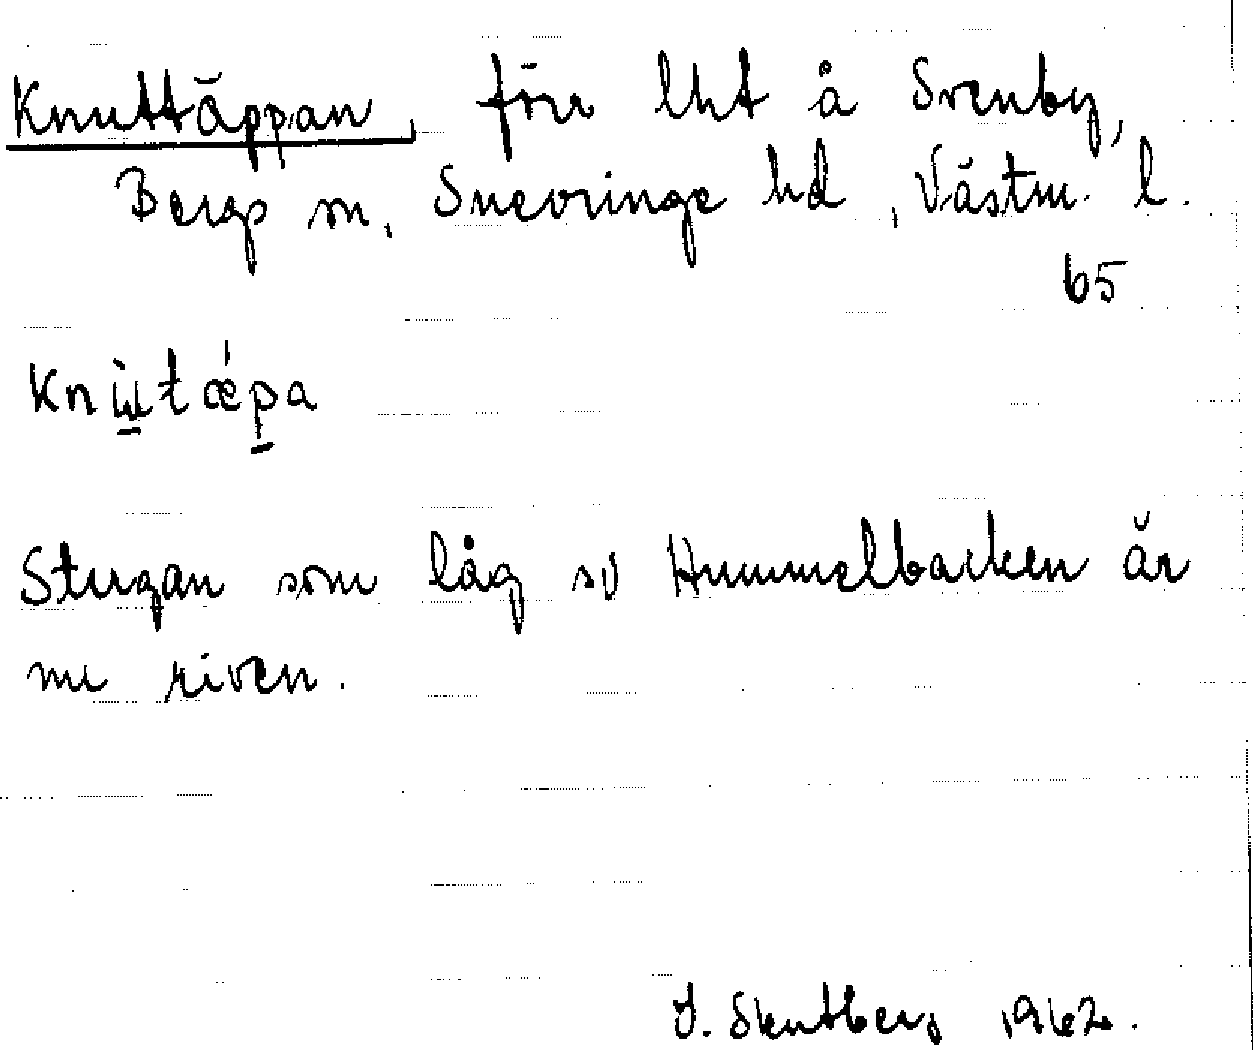 Knuttäppan, förr lht å Svenby,
Bergs sn, Snevringe hd, Västm. l.
65
Stugan som låg sv Hummelbacken är
nu riven.
1962.